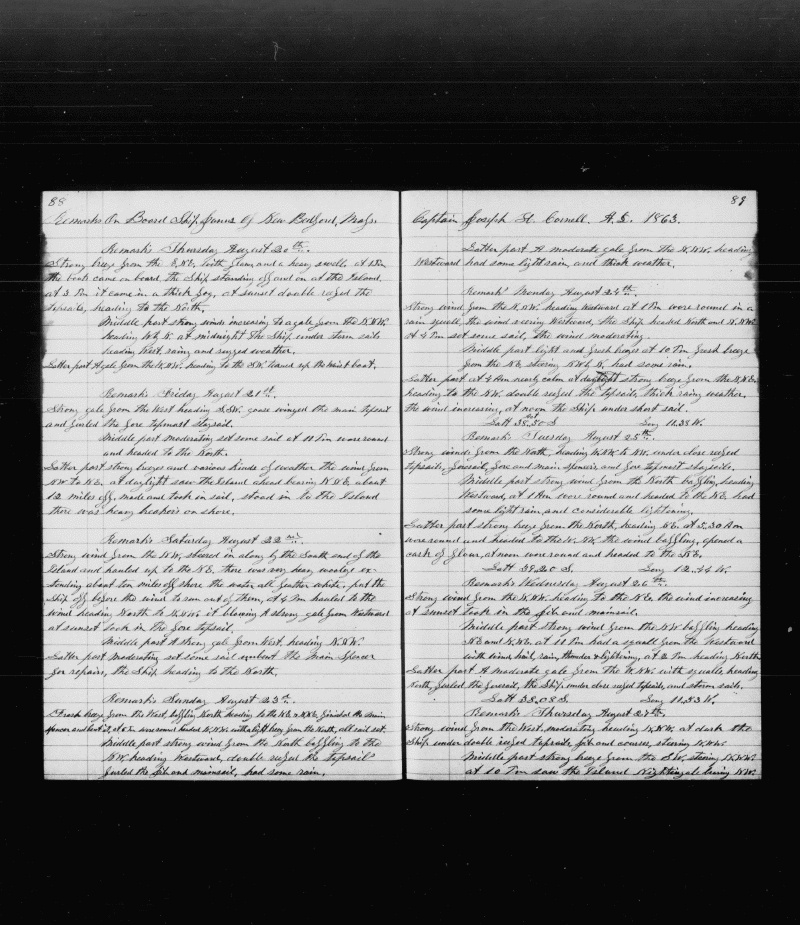 88
Remarks On Board Ship James Of New Bedford, Mass.
Remarks Thursday August 20th.
Strong breeze from the N.N.E. with glum and a heavy swell, at 1 Pm
the boats came on board, the Ship standing off and on at the Island.
at 3 Pm it came in a thick fog, at sunset double reefed the
topsails, heading to the North.
Middle part strong winds increasing to a gale from the N.N.W.
heading W by N. at midnight the Ship under storm sails
heading West, rainy and rugged weather.
Latter part A gale from the N.W. heading to the S.W. turned up the waist boat.
Remarks Friday August 21st.
Strong gale from the West heading S.S.W. goose winged the main topsail
and furled the fore topmast staysail.
Middle part moderating set some sail at 11 Pm wore round
and headed to the North.
Latter part strong breezes and various kinds of weather the wind from
NW to N.E. at daylight saw the Island ahead bearing N.N.E. about
12 miles off, made and took in sail, stood in to the Island
there was heavy breakers on shore.
Remarks Saturday August 22nd.
Strong wind from the N.W. steered in along by the South end of the
Island and hauled up to the N.E. there was very heavy woolies ex-
tending about ten miles off shore the water all feather white, put the
Ship off before the wind to run out of them, at 4 Pm hauled to the
wind heading North to N.N.W. it blowing A strong gale from Westward
at sunset took in the fore topsail.
Middle part A strong gale from West heading N.N.W.
Latter part moderating set some sail unbent the Main Spencer
for repairs, the Ship heading to the North.
Remarks Sunday August 23rd.
A Fresh breeze from the West, baffling North heading to the N.E. & N.N.E. finished the Main
spencer and bent it, at 6 Pm wore round headed W.N.W. with a light breeze from the North, all sail set.
Middle part strong wind from the North baffling to the
N.W. heading Westward, double reefed the topsails
furled the jib and mainsail, had some rain.
89
Captain Joseph H. Cornell. A.D. 1863.
Latter part A moderate gale from the N.N.W. heading
Westward had some light rain, and thick weather.
Remarks Monday August 24th.
Strong wind from the N.N.W. heading Westward at 1 Pm wore round in a
rain squall, the wind veering Westward, the Ship headed North and N.N.W.
at 4 Pm set some sail, the wind moderating.
Middle part light and fresh breezes at 10 Pm fresh breeze
from the N.E. steering N W by N, had some rain.
Latter part at 4 Am nearly calm at daylight strong breeze from the N.N.E.
heading to the N.W. double reefed the topsails, thick rainy weather.
the wind increasing, at noon the Ship under short sail.
Latt 38.50 S Long 11.38 W.
Remarks Tuesday August 25th.
Strong winds from the North, heading W.N.W. to NW, under close reefed
topsails, foresail, fore and main spencers, and fore topmost staysails.
Middle part strong wind from the North baffling, heading
Westward, at 1 Am wore round and headed to the N.E. had
some light rain, and considerable lightening.
Latter part strong breeze from the North, heading N.E. at 5.30 Am
wore round and headed to the W.N.W. the wind baffling, opened a
cask of flour, at noon wore round and headed to the N.E.
Latt 38.20 S. Long 12.44 W.
Remarks Wednesday August 26th.
Strong wind from the N.N.W. heading to the N.E. the wind increasing
at sunset took in the jib and mainsail.
Middle part strong wind from the N.W. baffling heading
N.E. and N.N.E. at 11 Pm had a squall from the Westward
with wind, hail, rain, thunder & lightening, at 2 Pm heading North
Latter part A moderate gale from the W.N.W. with squalls, heading
North, furled the foresail, the Ship under close reefed topsails, and storm sails.
Latt 38.08 S. Long 11.53 W.
Remarks Thursday August 27th.
Strong wind from the West, moderating heading N.N.W. at dark the
Ship under double reefed topsails, jib and courses, steering N.N.W.
Middle part strong breeze from the S.W. steering N.W.W.
at 10 Pm saw the Island Nightingale bearing N.W.